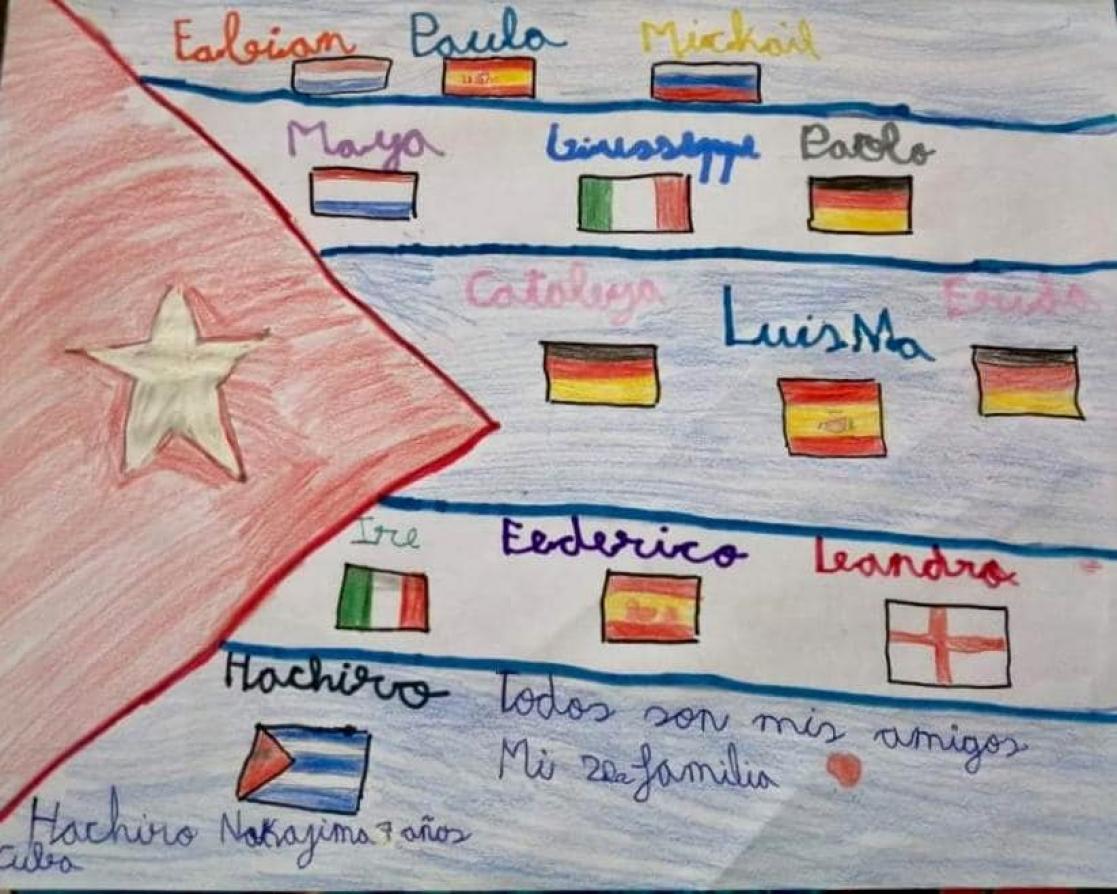 Fabian Paula Mickail
Maya Giusseppe Paolo
Cataleya LuisMa
Ire Federico Leandro
Hachiro
Todos son mis amigos
Mi 2da familia
Hachiro Nakajima 7 años
Cuba